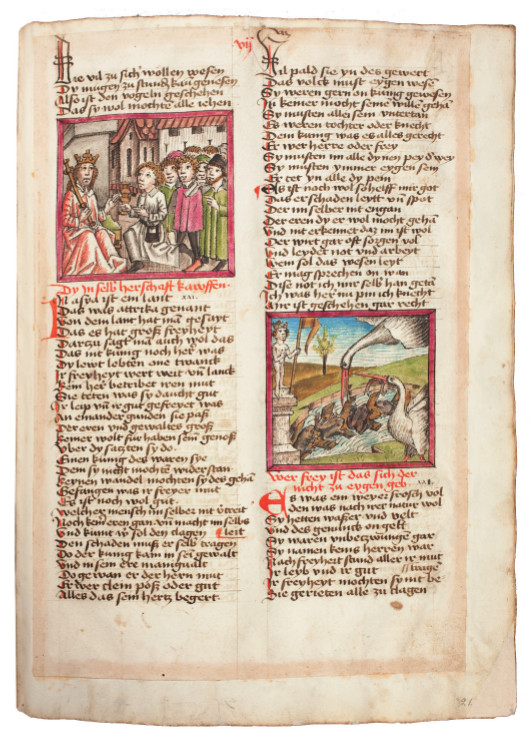 vij
Die vil zu sich wöllen wesen
Dy mugen zu stund kan genesen
Also ist den vogeln geschehen
Das sy wol mochte alle iehen
Dy in selb herschaft kawffen
xxi
In asya ist ein lant
Das was attica genant
von dem lant hat mā gesayt
Das es hat groß freyheyt
Darzu sagt mā auch wol das
Das nit kunig noch her was
Dy lewt lebten one twanck
Ir freyheyt wert weit vn̄ lanck
Kein her betribet iren mut
Sie teten was sy daucht gut
Ir leip vn̄ ir gut gefreyet was
An einander gunden sie paß
Der eren vnd gewaltes groß
keiner wolt für haben sein genoß
Vber dy satzten sy do
Einen kunig des waren sye
Dem sy nicht mochtē widerstan
keynen wandel mochten sy des gehā
Gefangen was ir freyer mut
Es ist noch wol gut
welcher mensch im selber nit v̈treit
Noch kein eren gan vn̄ macht im selbs leit
Vnd kumt er sol den clagen
Den schaden muß er selb tragen
Do der kunig kam in sei gewalt
Vnd in sein ere manigualt
Do gewan er der hern mut
Er wer clein pöß oder gut
Alles das sein hertz begert
Vil pald sie yn des gewert
Das volck must eygen wesē
Sy weren gern on kunig gewesen
Ir keiner mocht seinē willē gehā
Sy musten alle sein vntertan
Es weren tochter oder knecht
Dem kunig was es alles gerecht
Er wer herre oder frey
Sy musten im alle dynen pey
Sy musten ymmer eygen sein
Er tet yn alle dy pein
Als ist noch wol
Das er schaden leytt vn̄ spot
Der im selber nit engan
Der eren dy er wol mocht gehā
Vnd nit erkennet daz im ist wol
Der wirt gar oft sorgen vol
Vnd leydet not vnd arbeyt
wem sol das wesen leyt
Er mag sprechen on wan
Dise not ich mir selb han getā
Ich was her nu pin ich knecht
Mir ist geschehen gar recht
wer frey ist das sich der
nicht zu eygen geb
xxij
Es was ein weyer frosch vol
den was nach irer natur wol
Sy hetten waser vnd velt
Vnd des genuck on gelt
Sy waren vnbezwunge gar
Sy namen keins herren war
Nach freyheit stund aller ir mut
Ir leyb vnd ir gut
Ir freyheyt mochten sy nit be
trage
Sie gerieten alle zu klagen
21